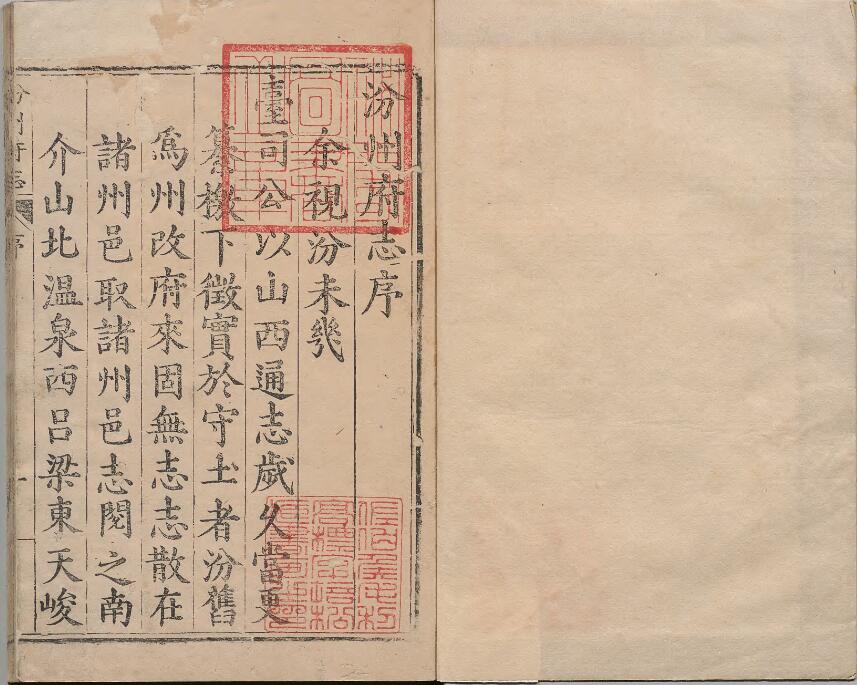 汾州府志序
余視汾未幾
臺司公以山西通志歲久當更
纂檄下徵實於守土者汾舊
爲州改府來固無志志散在
諸州邑取諸州邑志閱之南
介山北溫泉西呂梁東天峻
汾州府志 序 一